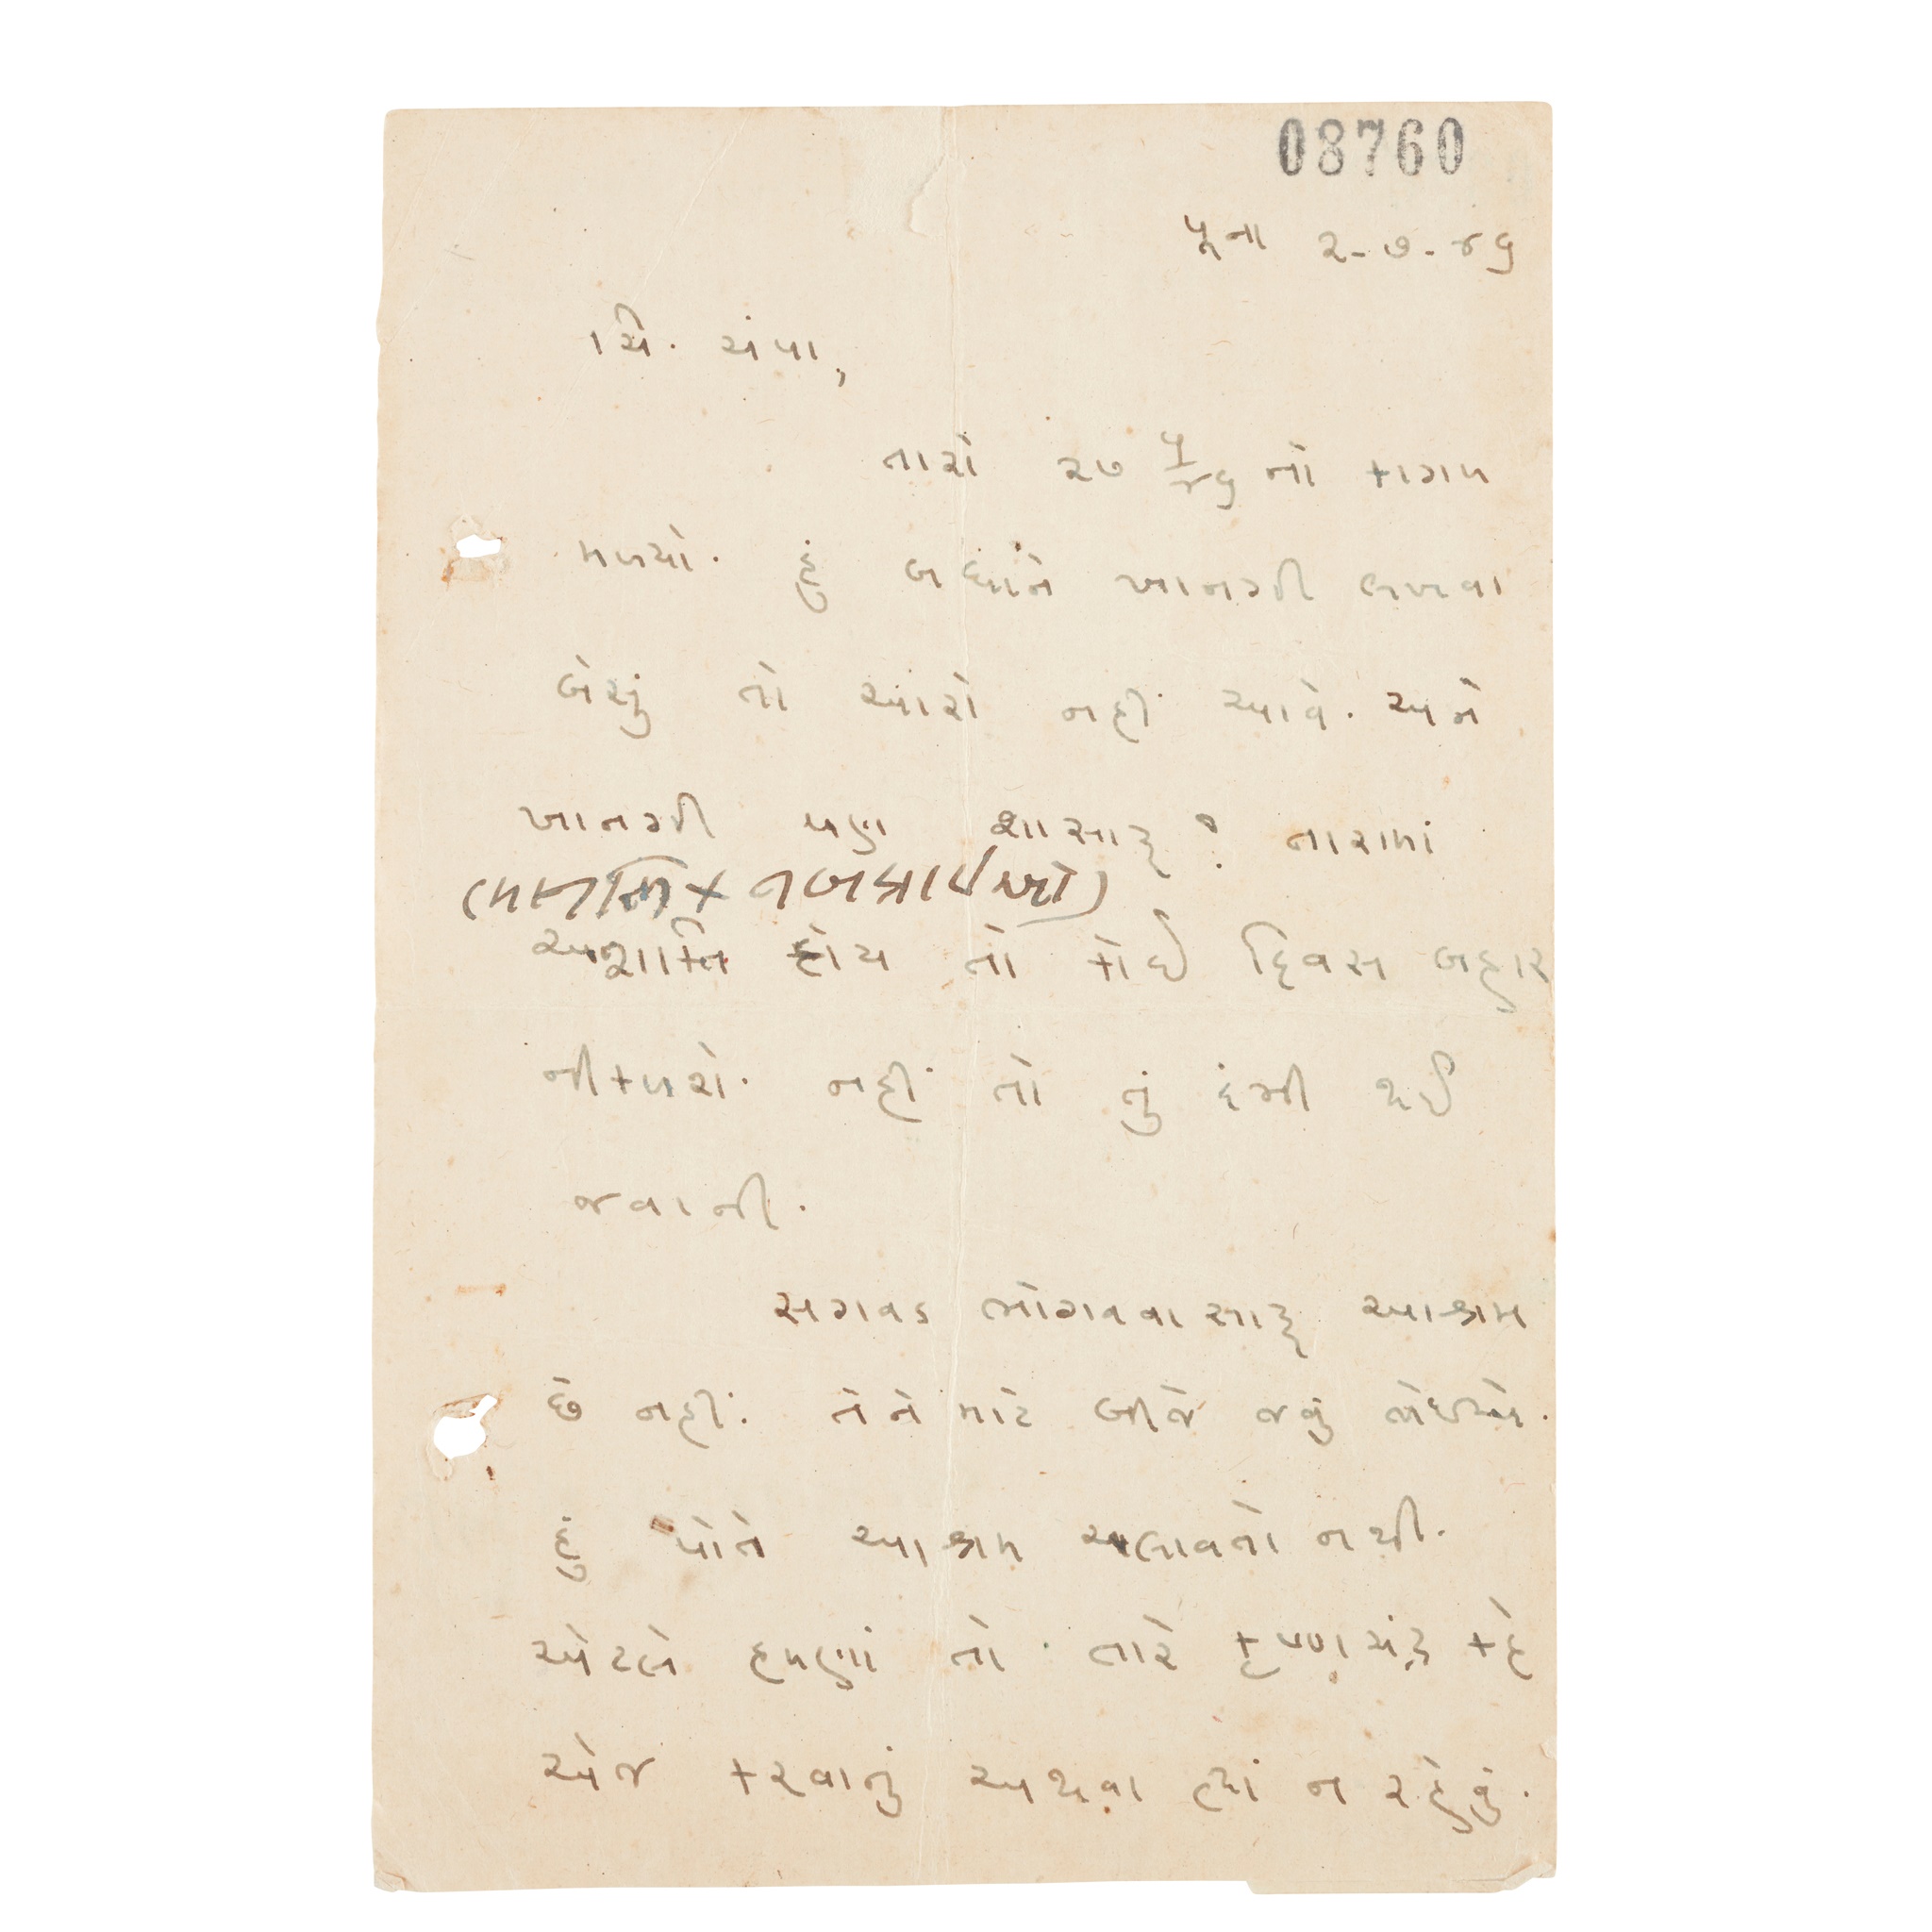 08760
પૂના ૨-૭-૪૬
ચિ. ચંપા,
તારો ૨૭ ૫/૪૬ નો કાગળ
મળ્યો. હું બધાંને ખાનગી લખવા
બેસું તો આરો નહીં આવે. અને
ખાનગી પણ શા સારૂ? તારામાં
(માનસિક નબળાઈઓ)
અશાન્તિ હોય તો કોઈ દિવસ બહાર
નીકળશે. નહીં તો તું દંભી થઈ
જવાની.
સગવડ ભોગવવા સારૂ આશ્રમ
છે નહીં. તેને માટે બીજે જવું જોઈએ.
હું પોતે આશ્રમ ચલાવતો નથી.
એટલે હમણાં તો તારે કૃષ્ણચંદ્ર કહે
એજ કરવાનું અથવા ત્યાં ન રહેવું.